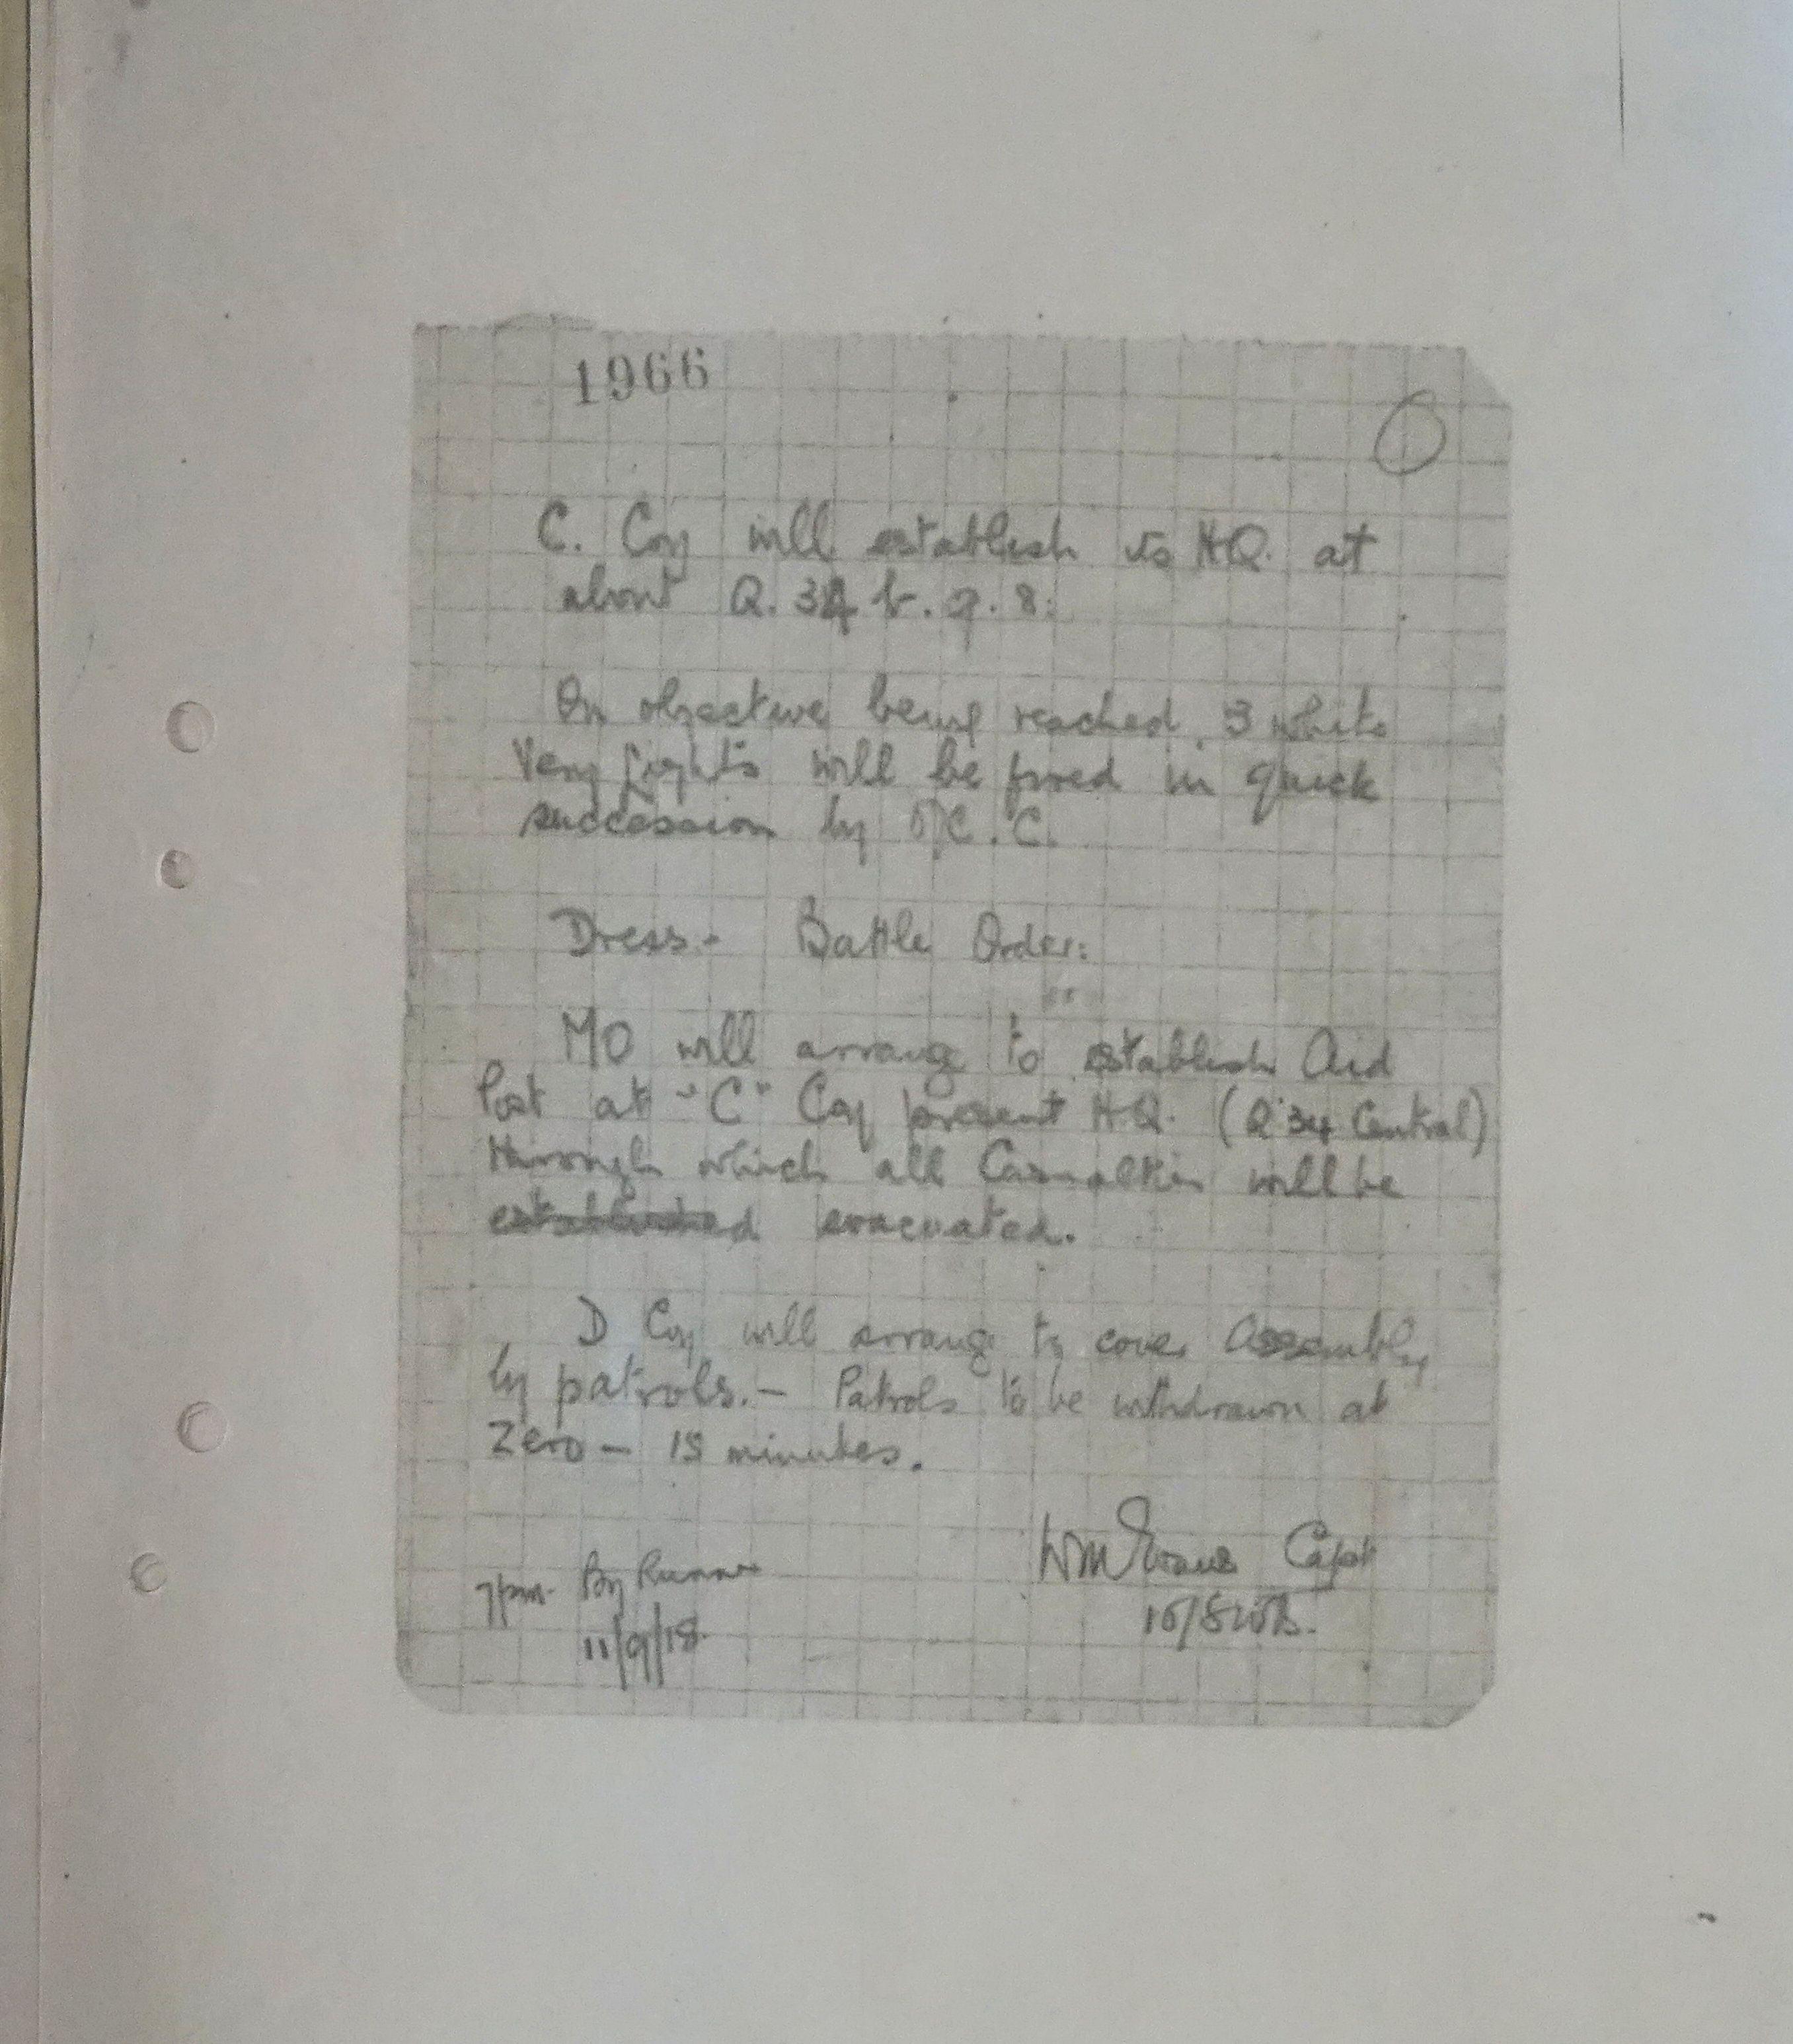 1966
C. Coy will establish its H.Q. at
about Q. 34 b. 9. 8.
On objective being reached, 3 white
Very Lights will be fired in quick
succession by O/C. C.
Dress - Battle Order.
MO will arrange to establish Aid
Post at "C" Coy present H.Q. (Q 34 Central)
through which all Casualties will be
established evacuated.
D Coy will arrange to cover Assembly
by patrols. - Patrols to be withdrawn at
Zero - 15 minutes.
7pm. By Runner
11/9/18
Wm Evans Capt